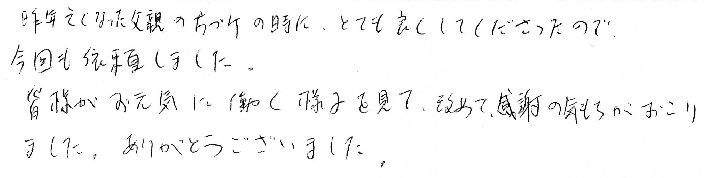 昨年亡くなった父親の片づけの時に、とても良くしてくださったので、
今回も依頼しました。
皆様がお元気に働く様子を見て、改めて、感謝の気もちがおこり
ました。ありがとうございました。